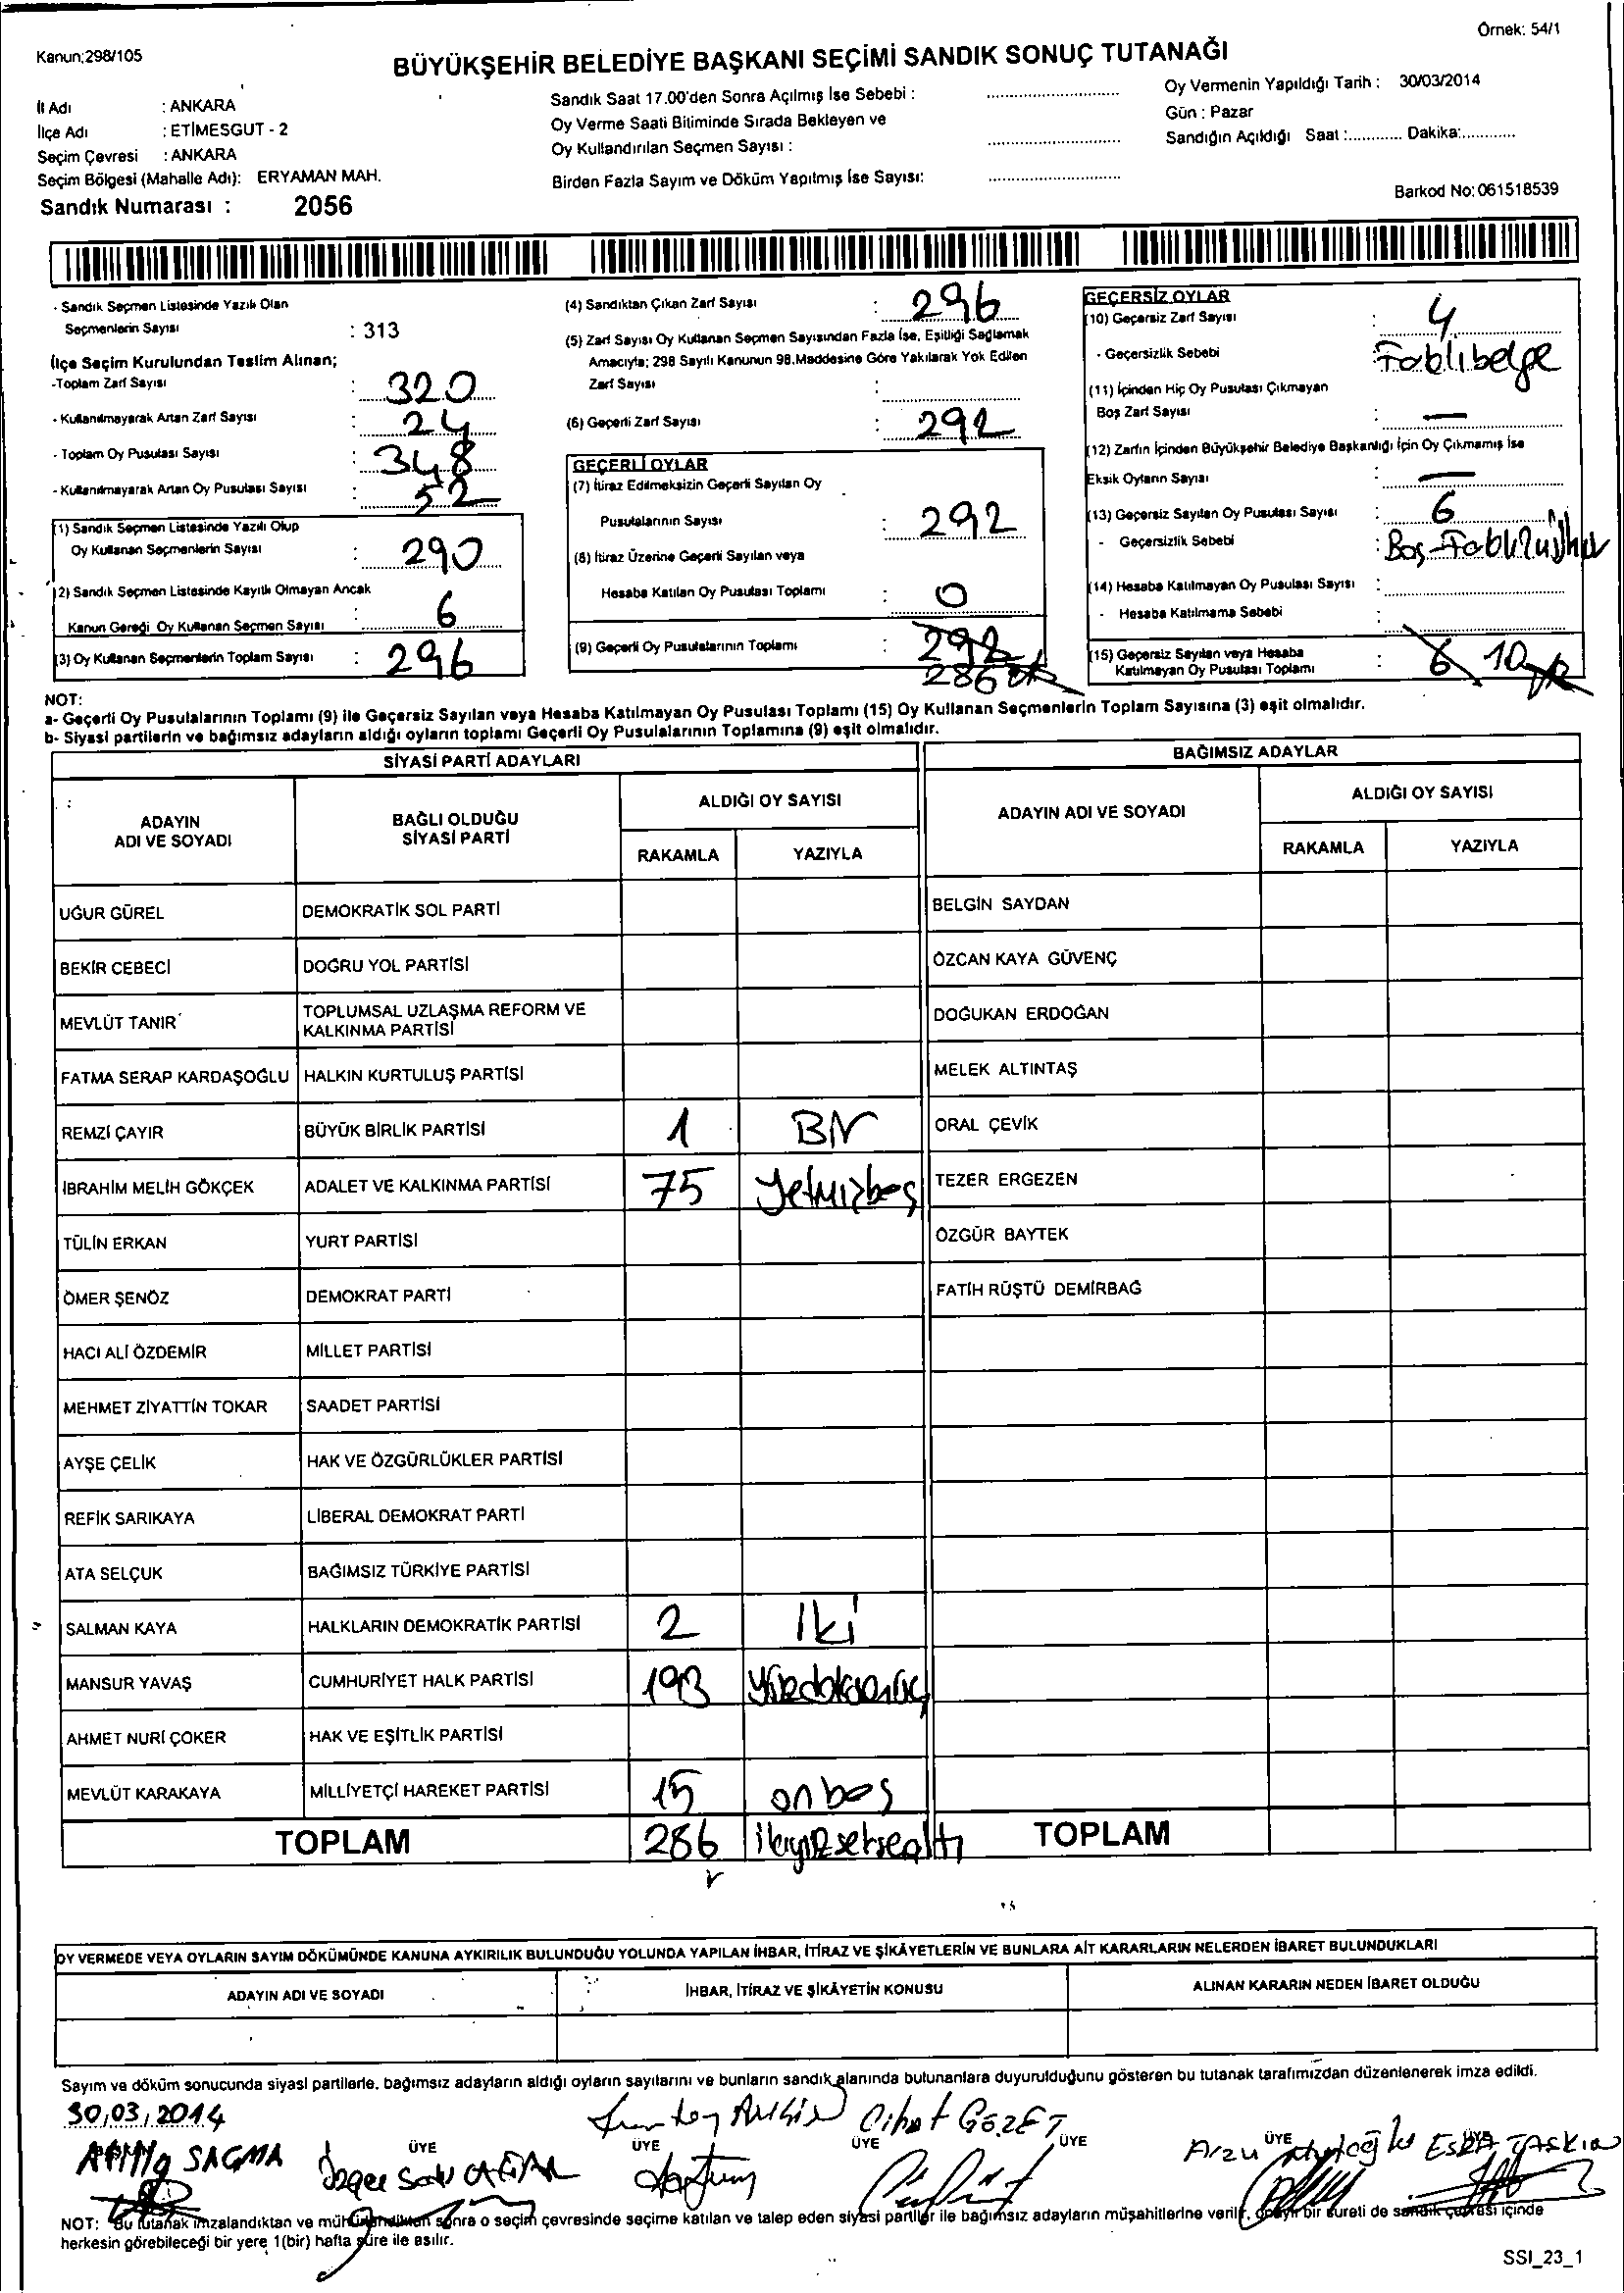 Örnek: 54/1
Kanun:298/105
BÜYÜKŞEHİR BELEDİYE BAŞKANI SEÇİMİ SANDIK SONUÇ TUTANAĞI
İl Adı : ANKARA
İlçe Adı : ETİMESGUT - 2
Seçim Çevresi : ANKARA
Seçim Bölgesi (Mahalle Adı): ERYAMAN MAH.
Sandık Numarası : 2056
Sandık Saat 17.00'den Sonra Açılmış İse Sebebi :
Oy Verme Saati Bitiminde Sırada Bekleyen ve
Oy Kullandırılan Seçmen Sayısı :
Birden Fazla Sayım ve Döküm Yapılmış İse Sayısı:
Oy Vermenin Yapıldığı Tarih : 30/03/2014
Gün : Pazar
Sandığın Açıldığı Saat :............ Dakika:............
Barkod No: 061518539
- Sandık Seçmen Listesinde Yazılı Olan
Seçmenlerin Sayısı : 313
İlçe Seçim Kurulundan Teslim Alınan;
-Toplam Zarf Sayısı : 320
- Kullanılmayarak Artan Zarf Sayısı : 24
- Toplam Oy Pusulası Sayısı : 348
- Kullanılmayarak Artan Oy Pusulası Sayısı : 52
(1) Sandık Seçmen Listesinde Yazılı Olup
Oy Kullanan Seçmenlerin Sayısı : 290
(2) Sandık Seçmen Listesinde Kayıtlı Olmayan Ancak
Kanun Gereği Oy Kullanan Seçmen Sayısı : 6
(3) Oy Kullanan Seçmenlerin Toplam Sayısı : 296
(4) Sandıktan Çıkan Zarf Sayısı : 296
(5) Zarf Sayısı Oy Kullanan Seçmen Sayısından Fazla İse, Eşitliği Sağlamak
Amacıyla; 298 Sayılı Kanunun 98.Maddesine Göre Yakılarak Yok Edilen
Zarf Sayısı :
(6) Geçerli Zarf Sayısı : 292
GEÇERLİ OYLAR
(7) İtiraz Edilmeksizin Geçerli Sayılan Oy
Pusulalarının Sayısı : 292
(8) İtiraz Üzerine Geçerli Sayılan veya
Hesaba Katılan Oy Pusulası Toplamı : 0
(9) Geçerli Oy Pusulalarının Toplamı : 292
286
GEÇERSİZ OYLAR
(10) Geçersiz Zarf Sayısı : 4
- Geçersizlik Sebebi :
(11) İçinden Hiç Oy Pusulası Çıkmayan
Boş Zarf Sayısı : —
(12) Zarfın İçinden Büyükşehir Belediye Başkanlığı İçin Oy Çıkmamış İse
Eksik Oyların Sayısı : —
(13) Geçersiz Sayılan Oy Pusulası Sayısı : 6
- Geçersizlik Sebebi : Boş
(14) Hesaba Katılmayan Oy Pusulası Sayısı :
- Hesaba Katılmama Sebebi :
(15) Geçersiz Sayılan veya Hesaba
Katılmayan Oy Pusulası Toplamı : 6 10
NOT:
a- Geçerli Oy Pusulalarının Toplamı (9) ile Geçersiz Sayılan veya Hesaba Katılmayan Oy Pusulası Toplamı (15) Oy Kullanan Seçmenlerin Toplam Sayısına (3) eşit olmalıdır.
b- Siyasi partilerin ve bağımsız adayların aldığı oyların toplamı Geçerli Oy Pusulalarının Toplamına (9) eşit olmalıdır.
SİYASİ PARTİ ADAYLARI
ADAYIN ADI VE SOYADI
BAĞLI OLDUĞU SİYASİ PARTİ
ALDIĞI OY SAYISI
RAKAMLA YAZIYLA
UĞUR GÜREL DEMOKRATİK SOL PARTİ
BEKİR CEBECİ DOĞRU YOL PARTİSİ
MEVLÜT TANIR TOPLUMSAL UZLAŞMA REFORM VE KALKINMA PARTİSİ
FATMA SERAP KARDAŞOĞLU HALKIN KURTULUŞ PARTİSİ
REMZİ ÇAYIR BÜYÜK BİRLİK PARTİSİ 1 Bir
İBRAHİM MELİH GÖKÇEK ADALET VE KALKINMA PARTİSİ 75 Yetmişbeş
TÜLİN ERKAN YURT PARTİSİ
ÖMER ŞENÖZ DEMOKRAT PARTİ
HACI ALİ ÖZDEMİR MİLLET PARTİSİ
MEHMET ZİYATTİN TOKAR SAADET PARTİSİ
AYŞE ÇELİK HAK VE ÖZGÜRLÜKLER PARTİSİ
REFİK SARIKAYA LİBERAL DEMOKRAT PARTİ
ATA SELÇUK BAĞIMSIZ TÜRKİYE PARTİSİ
SALMAN KAYA HALKLARIN DEMOKRATİK PARTİSİ 2 iki
MANSUR YAVAŞ CUMHURİYET HALK PARTİSİ 193 Yüzdoksanüç
AHMET NURİ ÇOKER HAK VE EŞİTLİK PARTİSİ
MEVLÜT KARAKAYA MİLLİYETÇİ HAREKET PARTİSİ 15 onbeş
TOPLAM 286 ikiyüzseksenaltı
BAĞIMSIZ ADAYLAR
ADAYIN ADI VE SOYADI
ALDIĞI OY SAYISI
RAKAMLA YAZIYLA
BELGİN SAYDAN
ÖZCAN KAYA GÜVENÇ
DOĞUKAN ERDOĞAN
MELEK ALTINTAŞ
ORAL ÇEVİK
TEZER ERGEZEN
ÖZGÜR BAYTEK
FATİH RÜŞTÜ DEMİRBAĞ
TOPLAM
OY VERMEDE VEYA OYLARIN SAYIM DÖKÜMÜNDE KANUNA AYKIRILIK BULUNDUĞU YOLUNDA YAPILAN İHBAR, İTİRAZ VE ŞİKÂYETLERİN VE BUNLARA AİT KARARLARIN NELERDEN İBARET BULUNDUKLARI
ADAYIN ADI VE SOYADI İHBAR, İTİRAZ VE ŞİKÂYETİN KONUSU ALINAN KARARIN NEDEN İBARET OLDUĞU
Sayım ve döküm sonucunda siyasi partilerle, bağımsız adayların aldığı oyların sayılarını ve bunların sandık alanında bulunanlara duyurulduğunu gösteren bu tutanak tarafımızdan düzenlenerek imza edildi.
30/03/2014
Cihat GÖZET
ÜYE ÜYE ÜYE ÜYE ÜYE ÜYE
SAĞMA Arzu ESRA TAŞKIN
NOT: Bu tutanak imzalandıktan ve mühürlendikten sonra o seçim çevresinde seçime katılan ve talep eden siyasi partiler ile bağımsız adayların müşahitlerine verilir, onaylı bir sureti de sandık çevresi içinde
herkesin görebileceği bir yere 1(bir) hafta süre ile asılır.
SSI_23_1